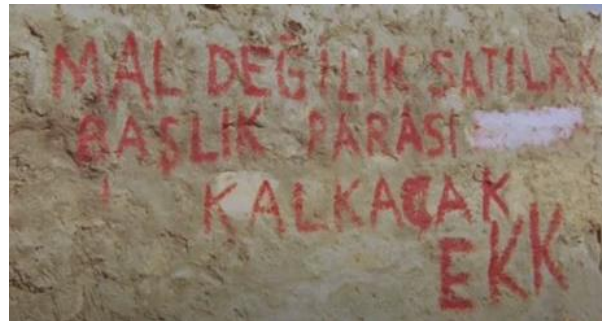 MAL DEĞİLİK SATILAK
BAŞLIK PARASI
KALKACAK
EKK